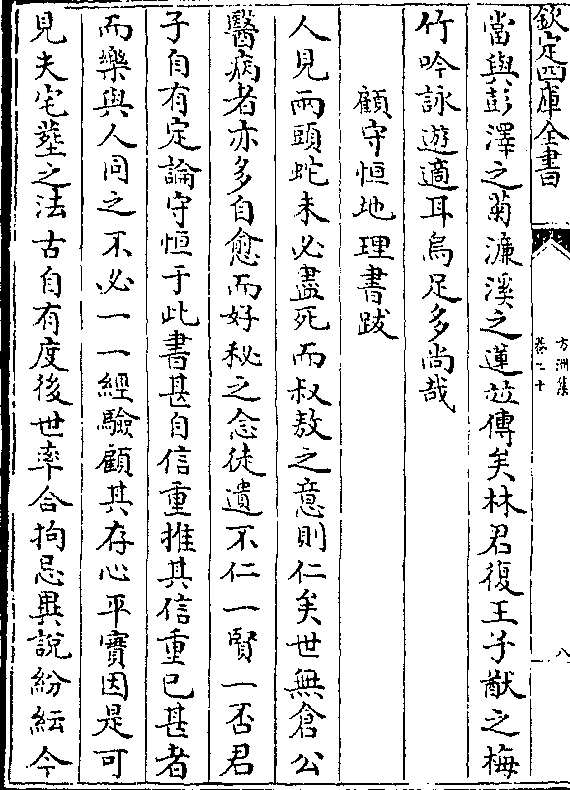 欽定四庫全書
方洲集
卷二十
八
當與彭澤之菊濂溪之蓮竝傳矣林君復王子猷之梅
竹吟詠遊適耳烏足多尚哉
顧守恒地理書跋
人見兩頭蛇未必盡死而叔敖之意則仁矣世無倉公
醫病者亦多自愈而好秘之念徒遺不仁一賢一否君
子自有定論守恒于此書甚自信重推其信重已甚者
而樂與人同之不必一一經驗顧其存心平實因是可
見夫宅塟之法古自有度後世率合拘忌異說紛紜今